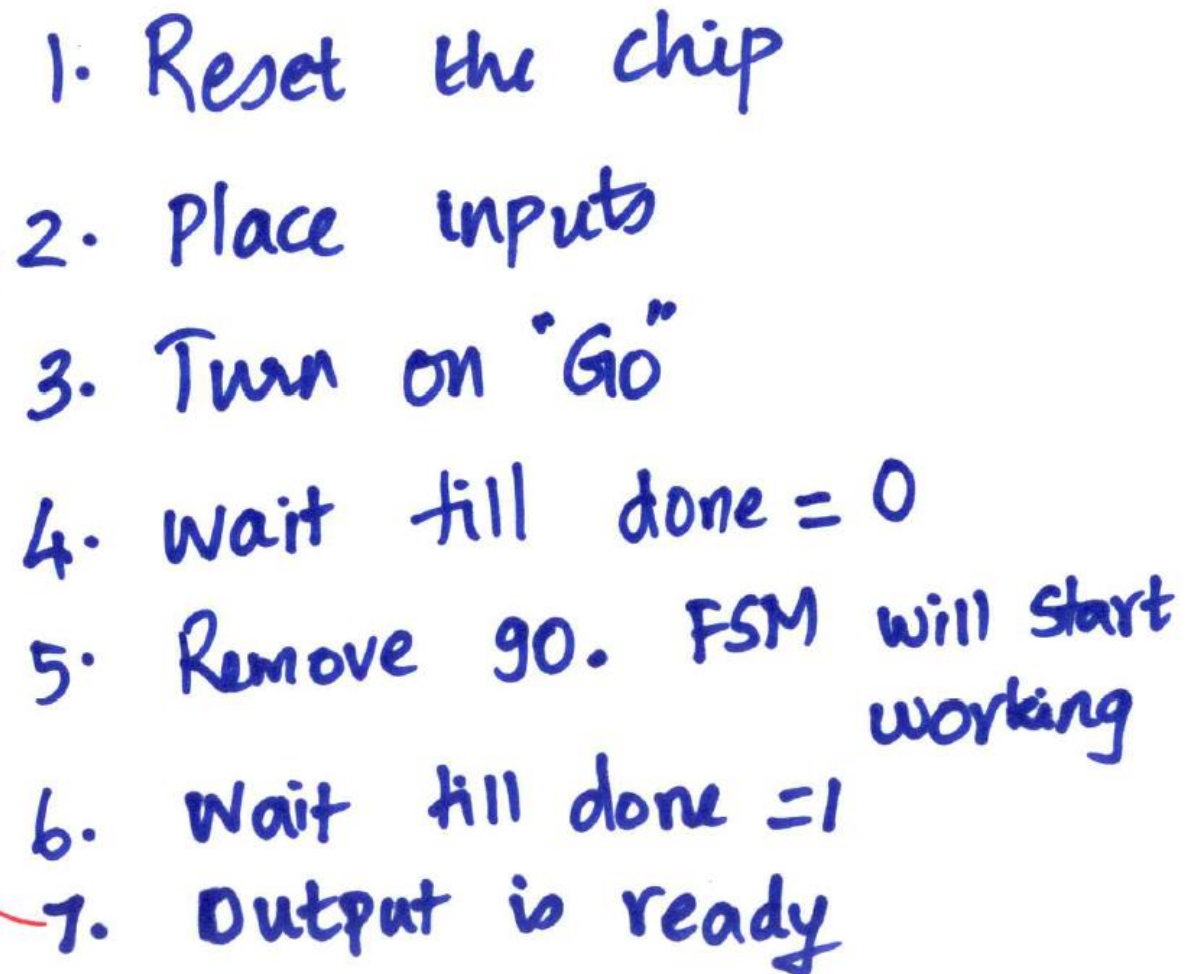 1. Reset the chip
2. Place inputs
3. Turn on "Go"
4. Wait till done = 0
5. Remove go. FSM will start
working
6. Wait till done =1
7. Output is ready